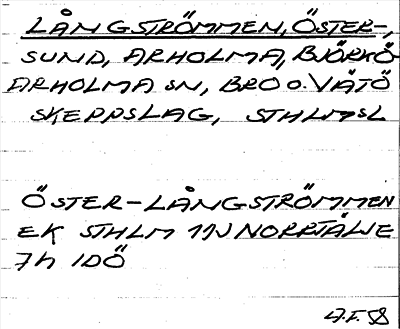 LÅNGSTRÖMMEN, ÖSTER-,
SUND, ARHOLMA, BJÖRKÖ-
ARHOLMA SN, BRO O. VÄTÖ
SKEPPSLAG, STHLMSL
ÖSTER-LÅNGSTRÖMMEN
EK STHLM 11J NORRTÄLJE
7h IDÖ